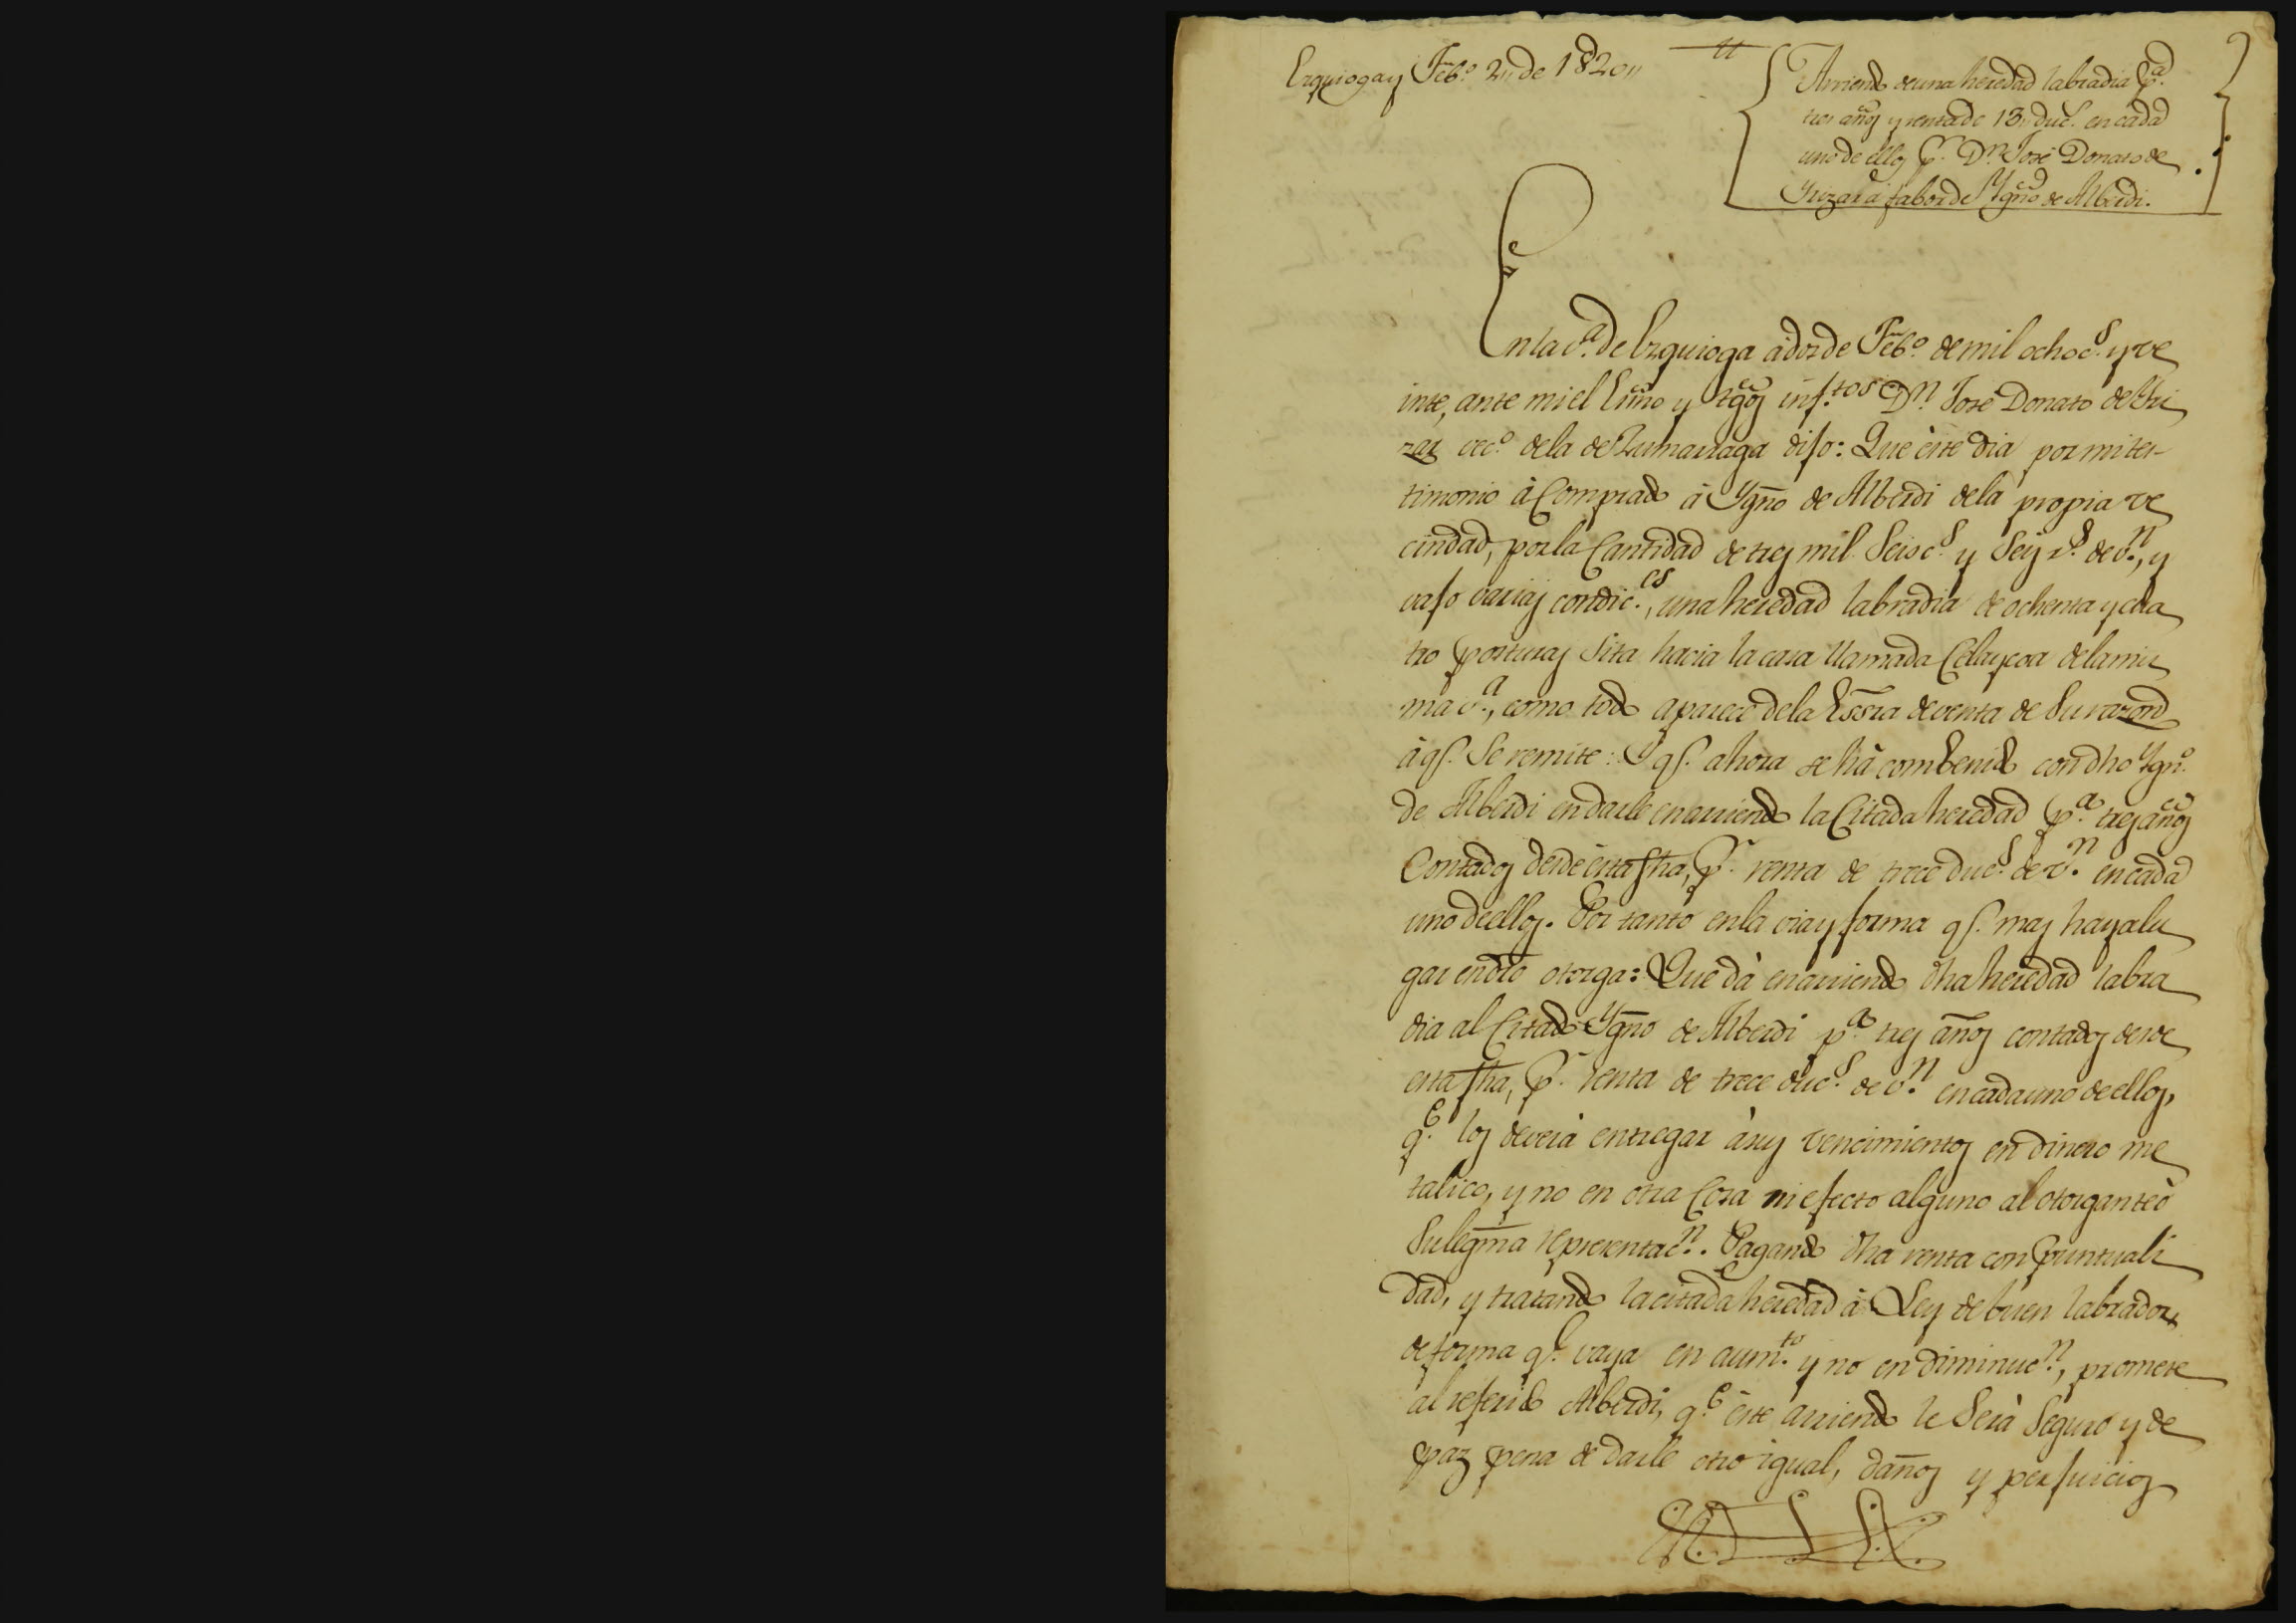 Ezquioga y Feb.º 2,, de 1820,,
Arriendo de una heredad labradia p.ª
tres años y renta de 13,, duc.s en cada
uno de ellos p.r D.n José Donato de
Yrizar á fabor de Ygno de Alberdi.
En la v.ª de Ezquioga à dos de Feb.º de mil ochoc.s y ve
inte, ante mi el Essno y tgos inf.tos D.n José Donato de Yri
zar vec.º de la de Zumarraga dijo: Que èste dia por mi tes-
timonio à Comprado à Ygno de Alberdi de la propia ve
cindad, por la Cantidad de tres mil Seisc.s y Seis r.s de v.n, y
vajo varias condic.es, una heredad labradia de ochenta y cua
tro posturas Sita hacia la casa llamada Celaycoa de la mis
ma v.ª, como todo aparece de la Essra de venta de Su razon
à q.e Se remite: Y q.e ahora se hà combenido con dho Ygn.º
de Alberdi en darle en arriendo la Citada heredad p.ª tres años
Contados desde èsta fha, p.r renta de trece duc.s de v.n en cada
uno de ellos. Por tanto en la via y forma q.e mas haya lu
gar en dro otorga: Que dà en arriendo dha heredad labra
dia al Citado Ygno de Alberdi p.ª tres años contados desde
esta fha, p.r renta de trece duc.s de v.n en cada uno de ellos,
q.e los deverà entregar à sus vencimientos en dinero me
talico, y no en otra Cosa ni efecto alguno al otorgante ò
Su legma representac.n. Pagando dha renta con puntuali
dad, y tratando la citada heredad à Ley de buen labrador,
de forma q.e vaya en aum.to y no en diminuc.n, promete
al referido Alberdi, q.e èste arriendo le Serà Seguro y de
paz pena de darle otro igual, daños y perjuicios